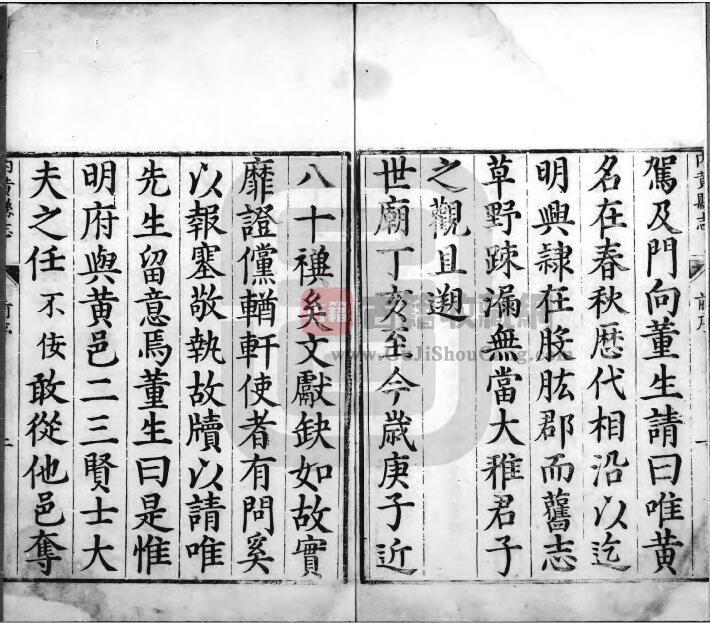 內黃縣志
前序
駕及門向董生請曰唯黃
名在春秋歷代相沿以迄
明興隷在股肱郡而舊志
草野踈漏無當大雅君子
之觀且遡
世廟丁亥至今歲庚子近
八十禩矣文獻缺如故實
靡證儻輶軒使者有問奚
以報塞敬執故牘以請唯
先生留意焉董生曰是惟
明府與黃邑二三賢士大
夫之任不佞敢從他邑奪
內黃縣志
前序
古籍
www.GuJiShouCang.com